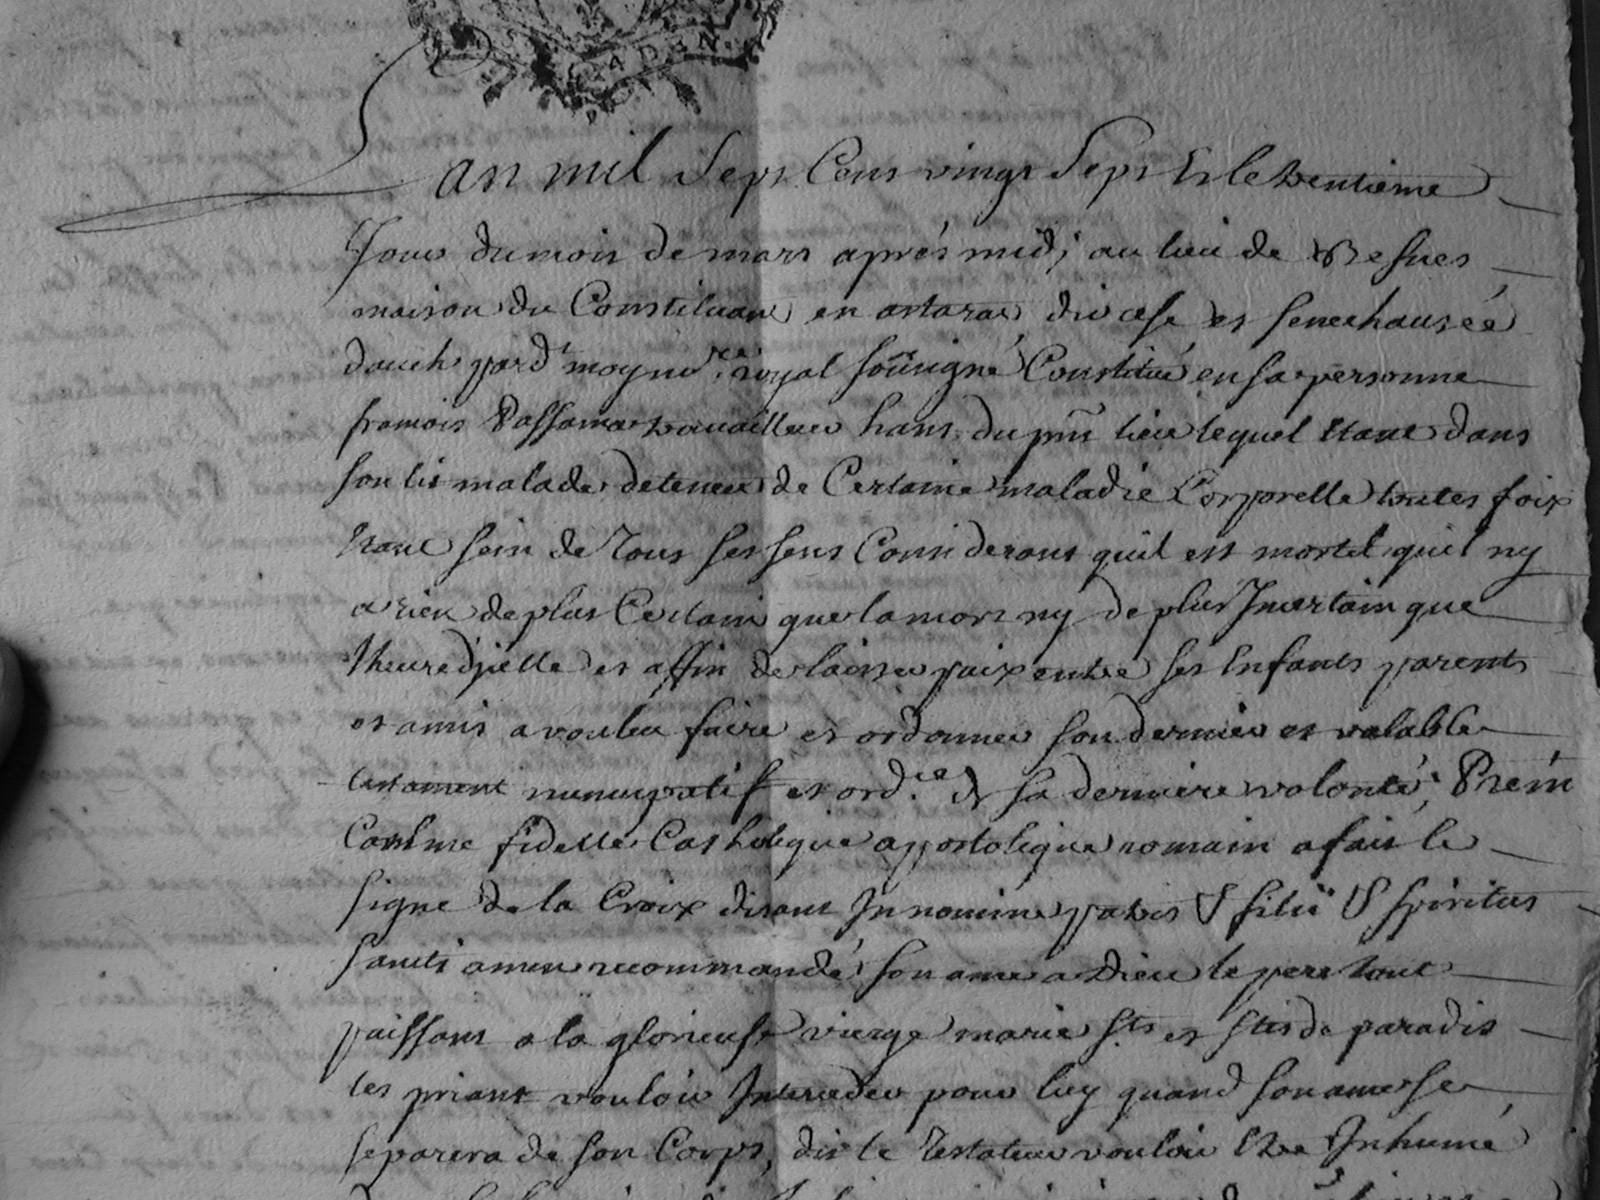 ADEN.
L'an mil Sept Cens vingt Sept Et le trentieme
Jour du mois de mars aprés midi au lieu de Besues
maison du Constituant en astarac diocese et senechaucée
dauch pard.t moy no.re royal soûsigné Constitué en sa personne
francois Dassama travailleur hant. du pnt lieu lequel Etant dans
son lit malade detenu de Certaine maladie Corporelle toutes foix
Etant sein de Tous ses sens Considerant quil est mortel quil ny
a rien de plus Certain que la mort ny de plus Incertain que
lheure dijcelle et affin de laisser paix entre ses Enfants parents
et amis a voulu faire et ordonner son dernier et valable
testament nuncupatif et ord.ce de sa derniere volonté; Premt
Comme fidelle Catholique appostolique romain a fait le
signe de la Croix disant In nomine patris & filiï & spiritus
sancti amen recommandé son ame a Dieu le pere tout
puissant a la glorieuse vierge marie sts et stes de paradis
les priant vouloir Interceder pour luy quand son ame se
separera de son Corps, dit le Testateur vouloir Etre Inhumé